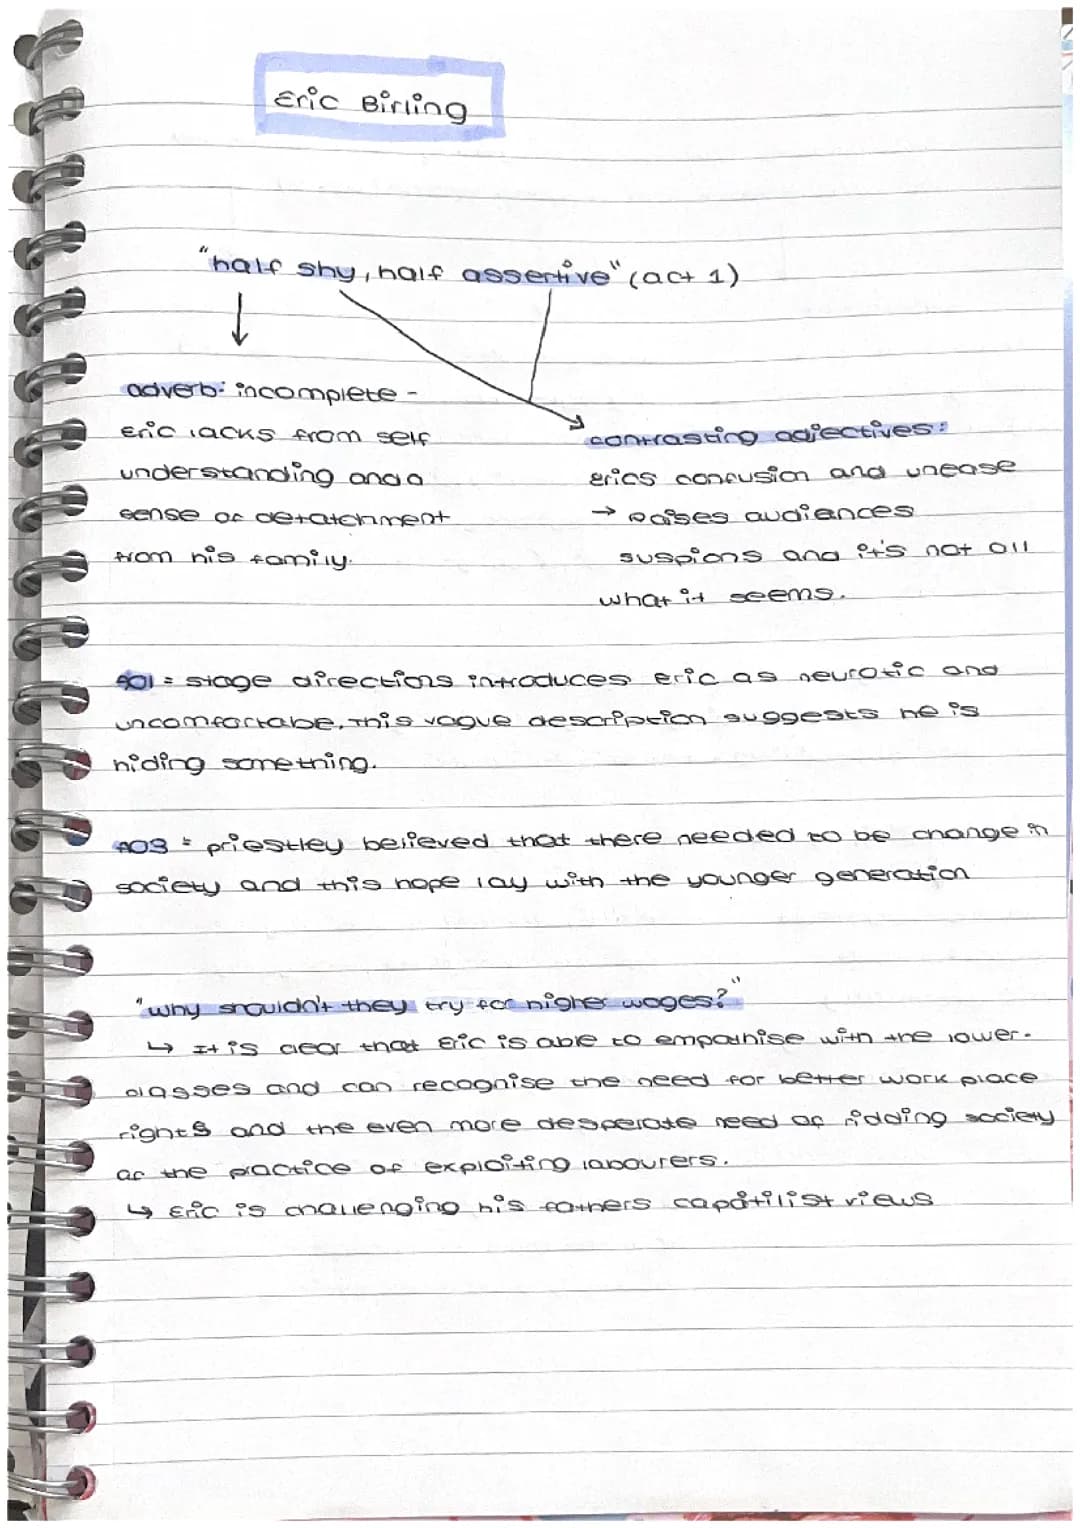 Eric Birling
"half shy, half assertive" (act 1)
adverb: incomplete -
Eric lacks from self
understanding and a
sense of detatchment
from his family.
contrasting adjectives:
erics confusion and unease
→ raises audiences
suspions and it's not all
what it seems.
A01 = stage directions introduces eric as neurotic and
uncomfortabe. This vague description suggests he is
hiding something.
A03 = priestley believed that there needed to be change in
society and this hope lay with the younger generation
"why shouldn't they try for higher wages?"
↳ It is clear that Eric is able to empathise with the lower-
classes and can recognise the need for better work place
rights and the even more desperate need of ridding society
of the practice of exploiting labourers.
↳ Eric is challenging his fathers capatilist views